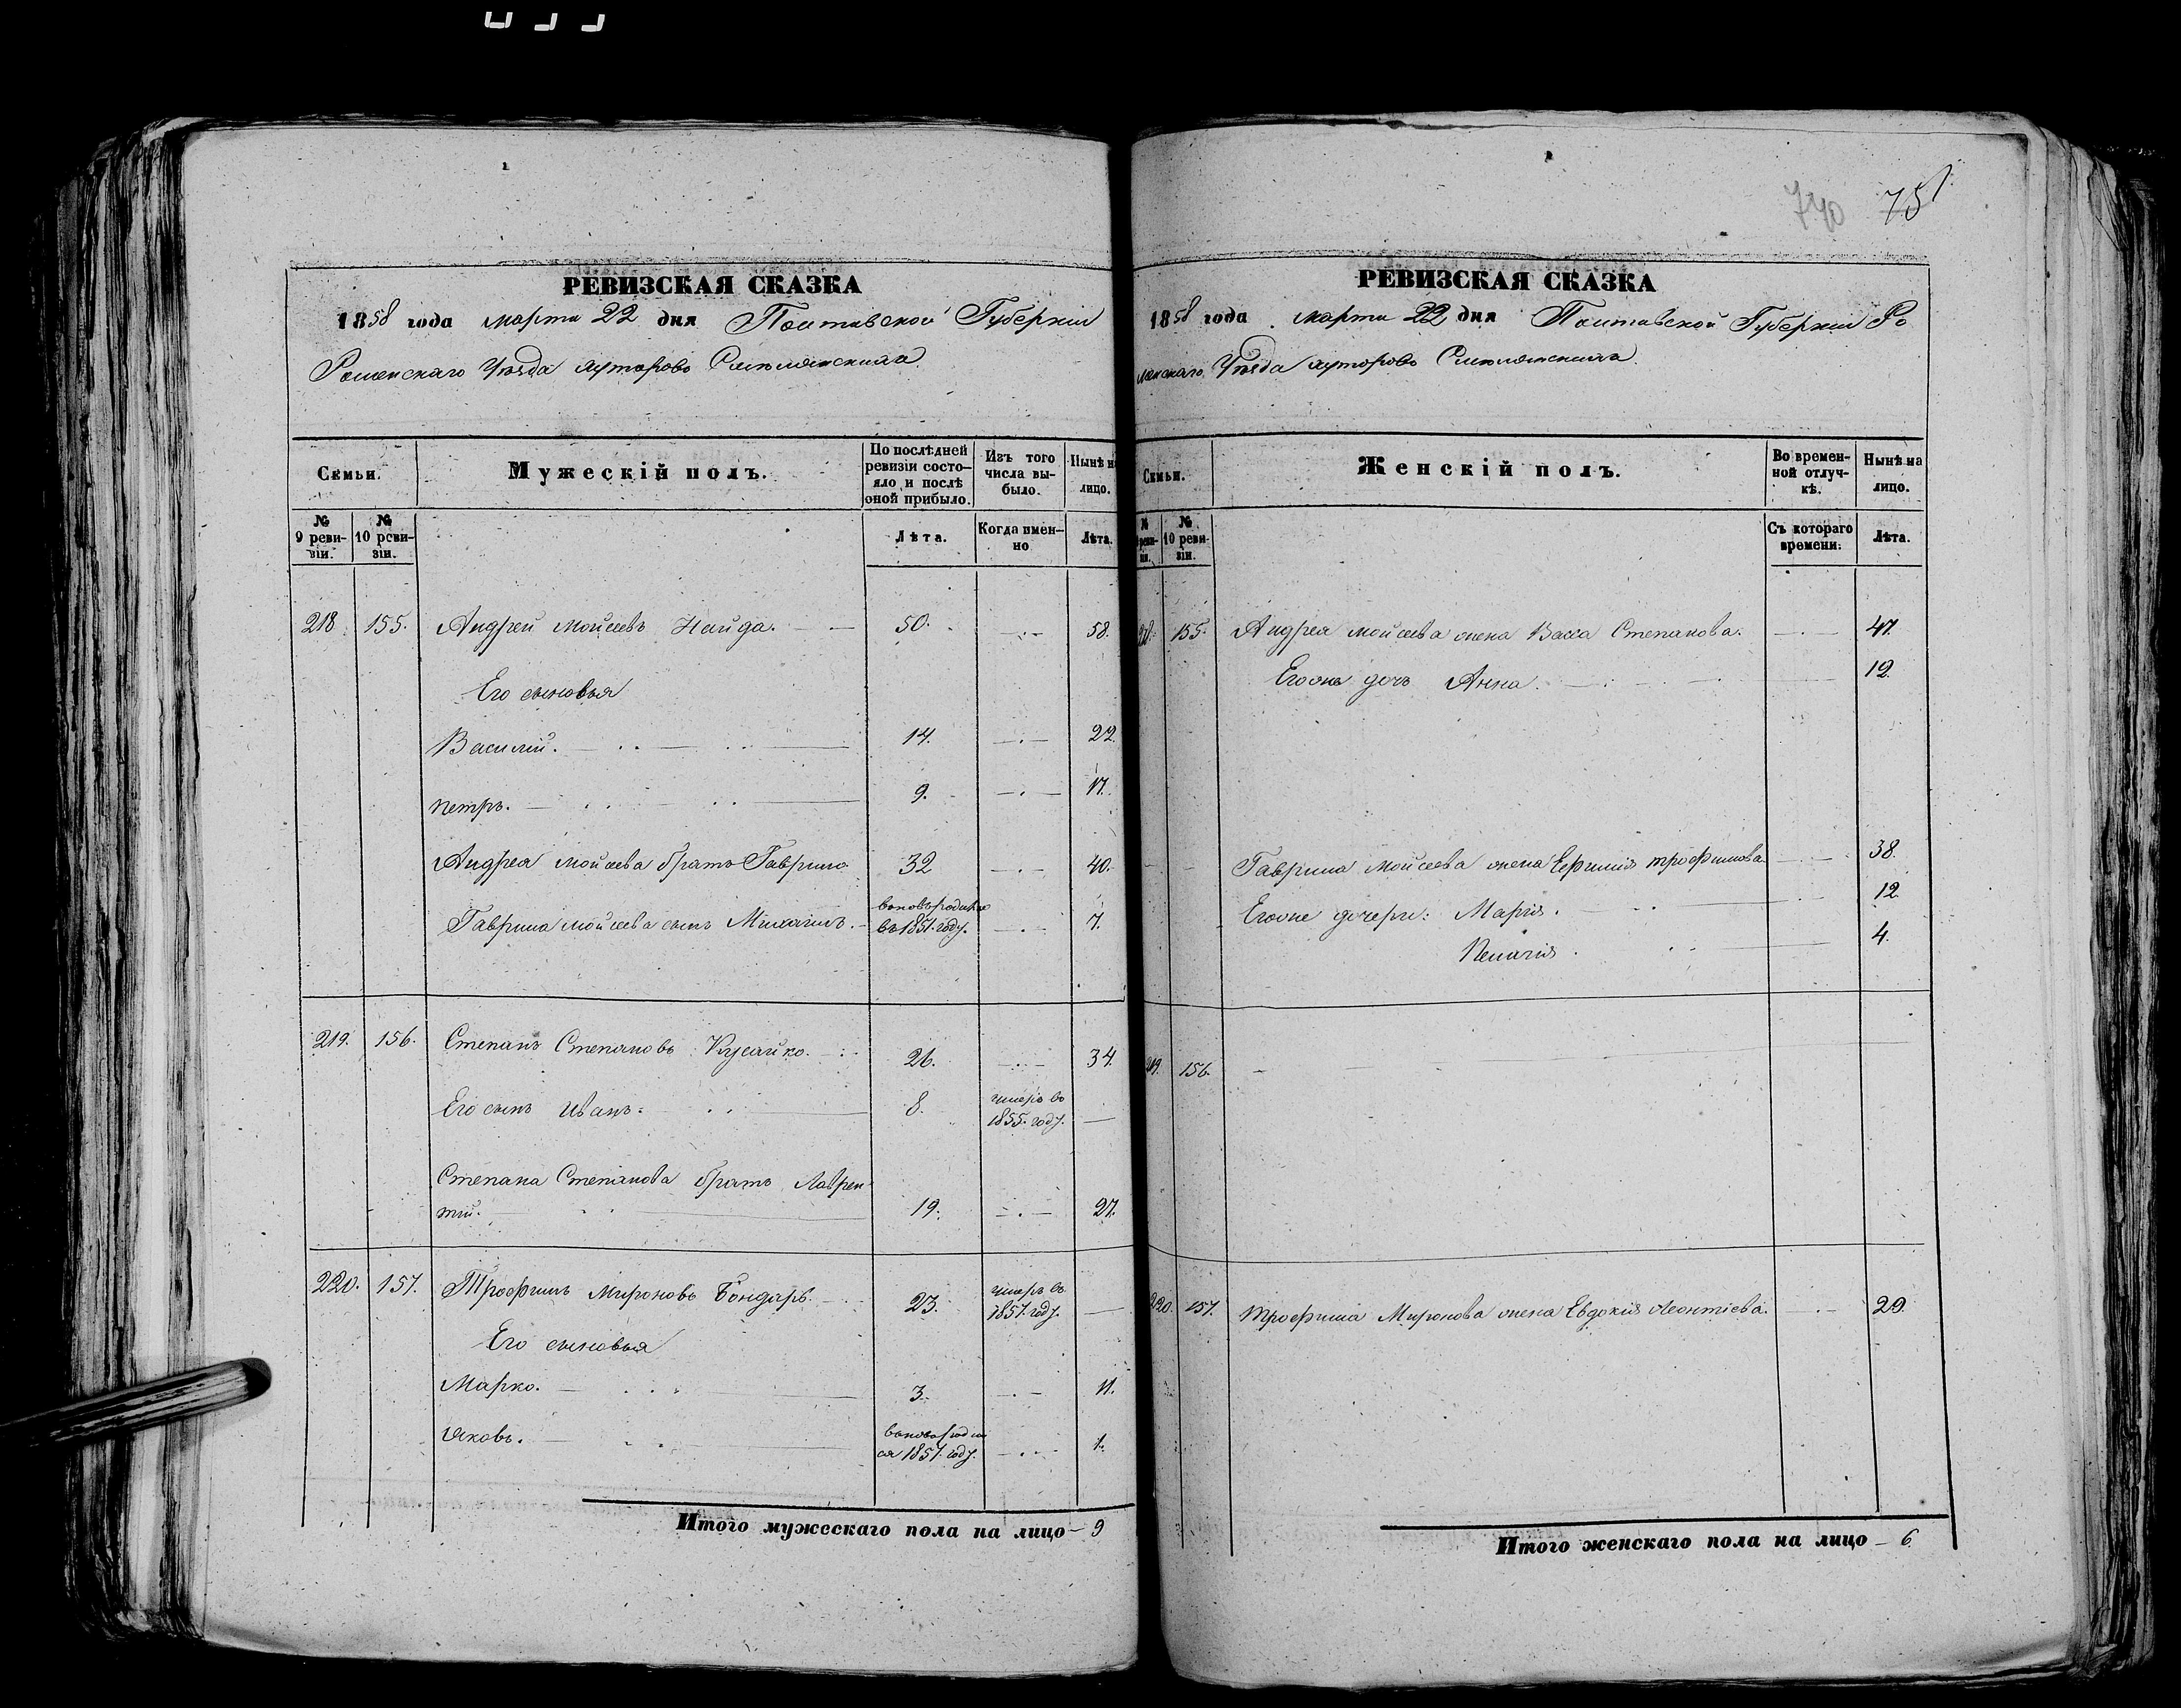 740 751
РЕВИЗСКАЯ СКАЗКА
1858 года марта 22 дня Полтавской Губерніи
Роменскаго Уѣзда хуторовъ
Семьи.
Мужескій полъ.
По послѣдней ревизіи состояло, и послѣ оной прибыло.
Изъ того числа выбыло.
Нынѣ на лицо.
№ 9 ревизіи.
№ 10 ревизіи.
Лѣта.
Когда именно
Лѣта.
218. 155. Андрей Мойсеевъ Найда. 50. 58.
Его сыновья
Василій. 14. 22.
Петръ. 9. 17.
Андрея Мойсеева братъ Гаврило 32 40.
Гаврила Мойсеева сынъ Михаилъ. въ 1851. году. 7.
219. 156. Степанъ Степановъ Кусайко. 26. 34.
Его сынъ Иванъ. 8. умеръ въ 1855. году.
Степана Степанова братъ Лаврен-
тій. 19. 27.
220. 157. Трофимъ Мироновъ Бондарь. 23. умеръ въ 1857. году.
Его сыновья
Марко. 3. 11.
Яковъ. 1857. году. 1.
Итого мужескаго пола на лицо 9
РЕВИЗСКАЯ СКАЗКА
1858 года марта 22 дня Полтавской Губерніи Ро
менскаго Уѣзда хуторовъ
Семьи.
Женскій полъ.
Во временной отлучкѣ.
Нынѣ на лицо.
№ 10 ревизіи.
Съ котораго времени:
Лѣта.
218. 155. Андрея Мойсеева жена Васса Степанова. 47.
Его же дочь Анна. 12.
Гаврила Мойсеева жена Ефимія Трофимова 38.
Его же дочери: Марія. 12.
Пелагія. 4.
219. 156.
220. 157. Трофима Миронова жена Евдокія Леонтіева. 29.
Итого женскаго пола на лицо 6